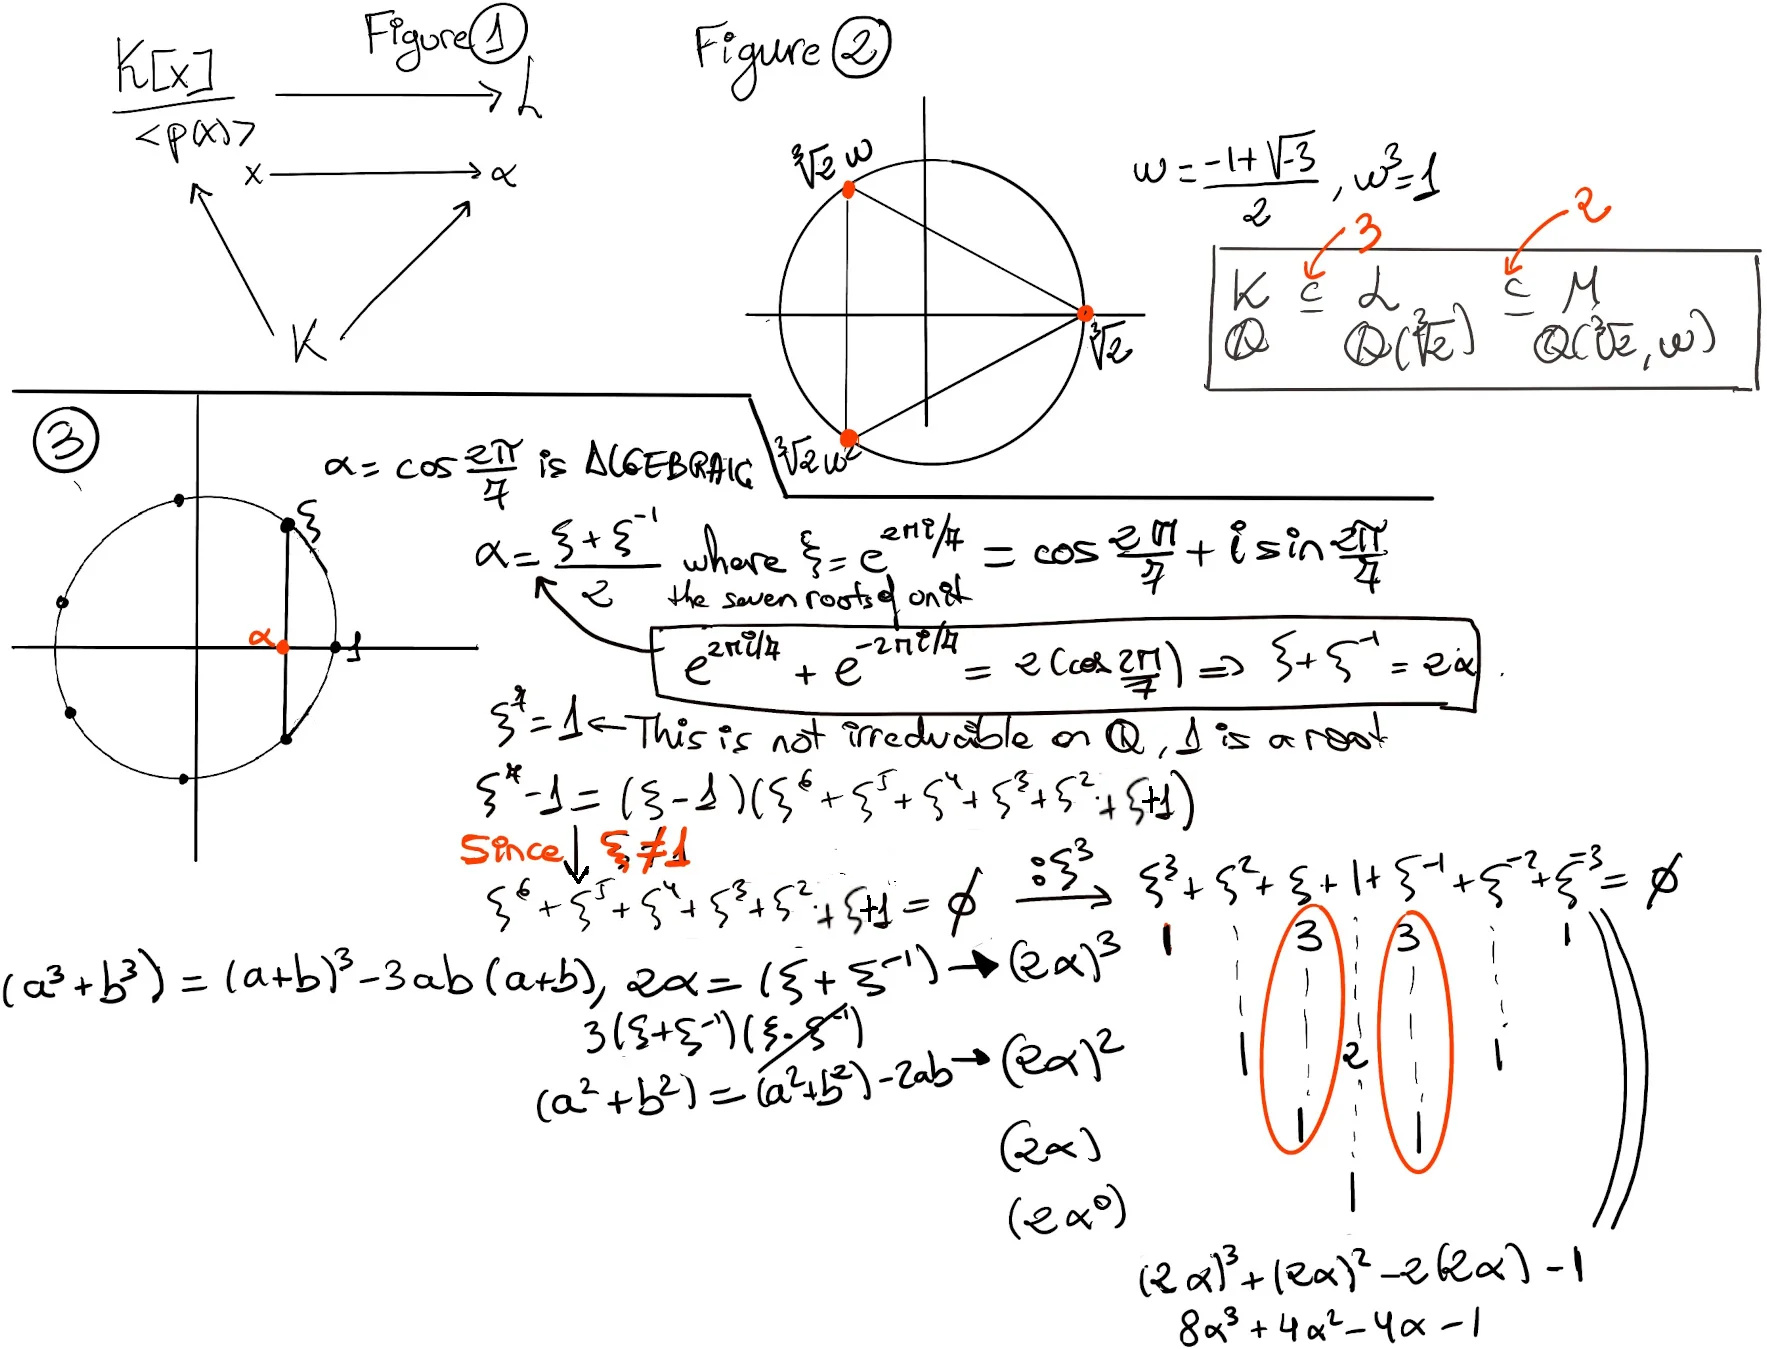 Figure ①
K[x] / <p(x)> → L
x → α
K
Figure ②
∛2 w
∛2
∛2 w²
w = (-1+√-3)/2 , w³=1
3
2
K ⊆ L ⊆ M
Q Q(∛2) Q(∛2, w)
③
α = cos 2π/7 is ALGEBRAIC
ξ
α
1
α = (ξ + ξ⁻¹)/2 where ξ = e^(2πi/7) = cos 2π/7 + i sin 2π/7
the seven roots of unit
e^(2πi/7) + e^(-2πi/7) = 2(cos 2π/7) ⇒ ξ + ξ⁻¹ = 2α
ξ⁷ = 1 ← This is not irreducible on Q, 1 is a root
ξ⁷ - 1 = (ξ - 1)(ξ⁶ + ξ⁵ + ξ⁴ + ξ³ + ξ² + ξ + 1)
Since ↓ ξ ≠ 1
ξ⁶ + ξ⁵ + ξ⁴ + ξ³ + ξ² + ξ + 1 = ∅ :ξ³ → ξ³ + ξ² + ξ + 1 + ξ⁻¹ + ξ⁻² + ξ⁻³ = ∅
(a³ + b³) = (a+b)³ - 3ab(a+b), 2α = (ξ + ξ⁻¹) → (2α)³ 1 3 3 1
3(ξ + ξ⁻¹)(ξ · ξ⁻¹)
(a² + b²) = (a² + b²) - 2ab → (2α)² 1 2 1
(2α) 1 1
(2α⁰) 1
(2α)³ + (2α)² - 2(2α) - 1
8α³ + 4α² - 4α - 1